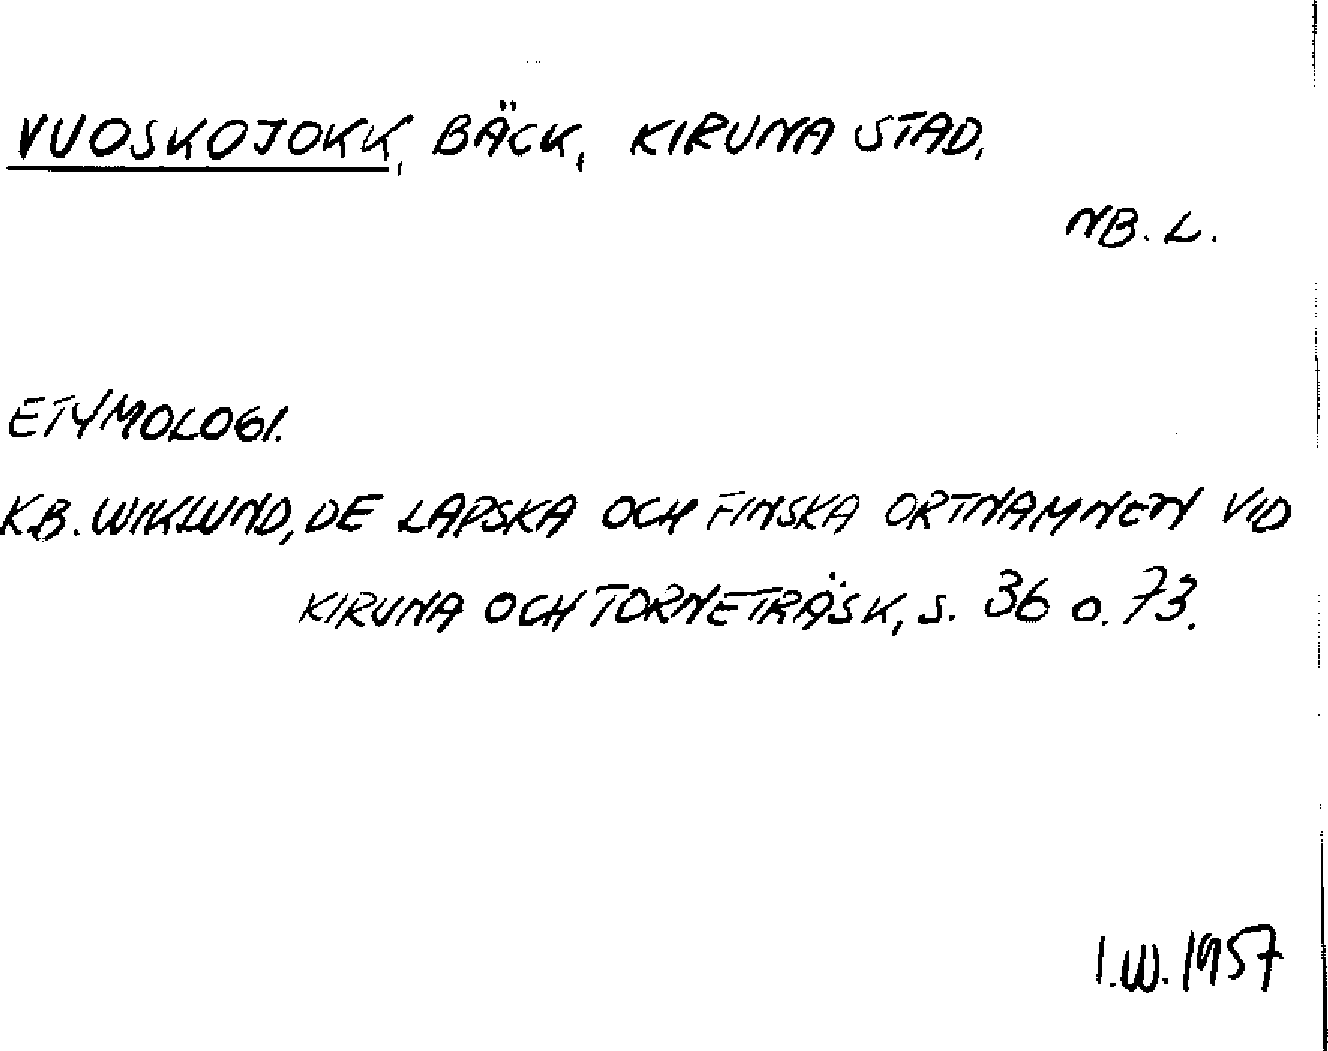 VUOSKOJOKK, BÄCK, KIRUNA STAD,
NB. L.
ETYMOLOGI.
K.B. WIKLUND, DE LAPSKA OCH FINSKA ORTNAMNEN VID
KIRUNA OCH TORNETRÄSK, S. 36 O. 73.
I.W. 1957